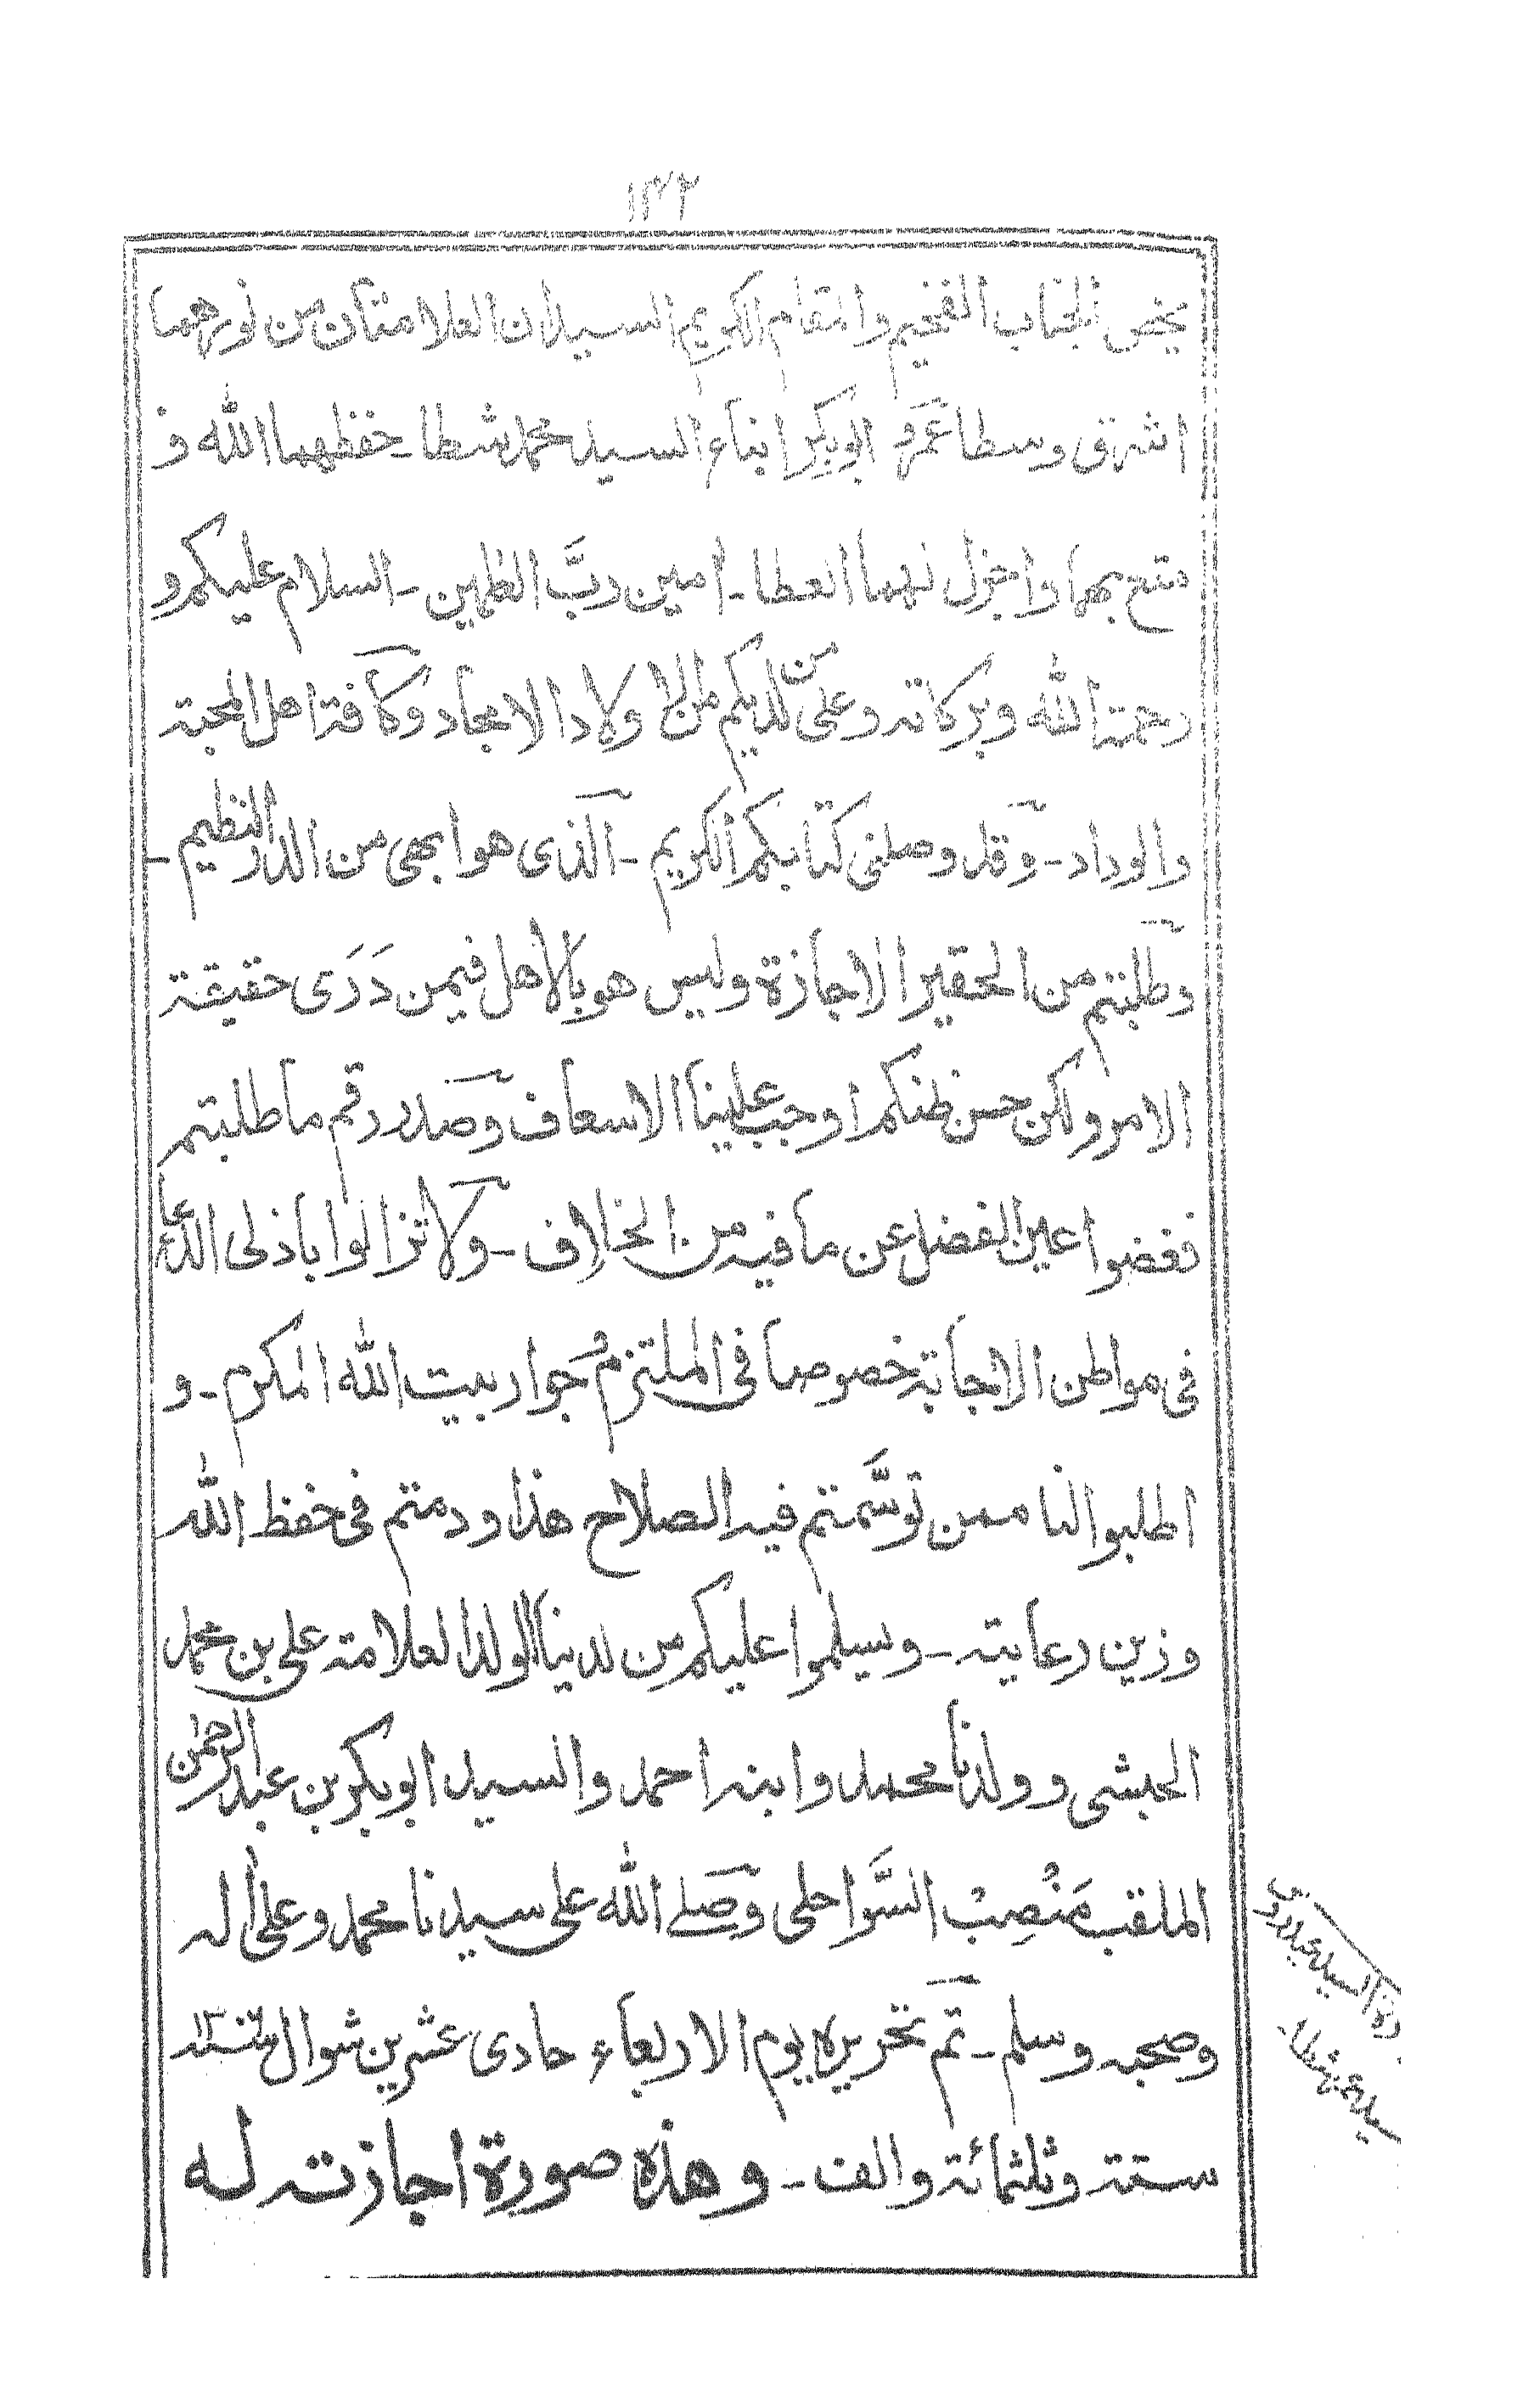 ١٣٢
يخص الجناب الفخيم والمقام الكريم السيدان العلامتان من نورهما
اشرق وسطا عمر و ابوبكر ابناء السيد محمد شطا ـ حفظهما الله و
متع بهما واجزل لهما العطا ـ امين ربَّ العٰلمين ـ السلام عليكم و
رحمة الله وبركاته وعلى من لديكم من الاولاد الامجاد وكافة اهل المحبة
والوداد ـ وقد وصلنى كتابكم الكريم ـ الذى هو ابهى من الدر النظيم ـ
وطلبتم من الحقير الاجازة وليس هو بالاهل فيمن دَرَى حقيقة
الامر ولكن حسن ظنكم اوجب علينا الاسعاف وصدر رقم ما طلبتم
فغضوا عين الفضل عن ما فيه من الخلاف ـ ولا تزالوا باذلى الدعا
فى مواطن الاجابة خصوصا فى الملتزم و جوار بيت الله المكرم ـ و
اطلبوا لنا ممن توسَّمتم فيه الصلاح هذا ودمتم فى حفظ الله
وزين رعايته ـ وسيلموا عليكم من لدينا الولد العلامة على بن محمد
الحبشى وولدنا محمد وابنه احمد والسيد ابوبكر بن عبد الرحمٰن
الملقب مَنْصِبْ السَّواحلى وصلے الله على سيدنا محمد وعلى اٰله
وصحبه وسلم ـ تم تحريره يوم الاربعاء حادى عشرين شوال سنه ١٣٠٦
ستة وثلثمائة والف ـ وهذه صورة اجازته له